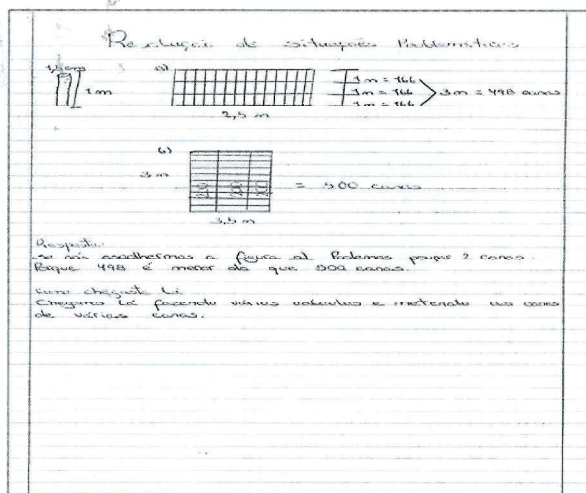 Resolução de situações Problemáticas
1,5 cm
1 m
a)
1m = 166
1m = 166
1m = 166
3m = 498 canas
2,5 m
b)
3 m
= 500 canas
3,5 m
Resposta:
se nós escolhermos a figura a) Podemos poupar 2 canas.
Porque 498 é menor do que 500 canas.
Como chegaste lá
Chegamos lá fazendo vários cálculos e metendo as canas
de várias canas.